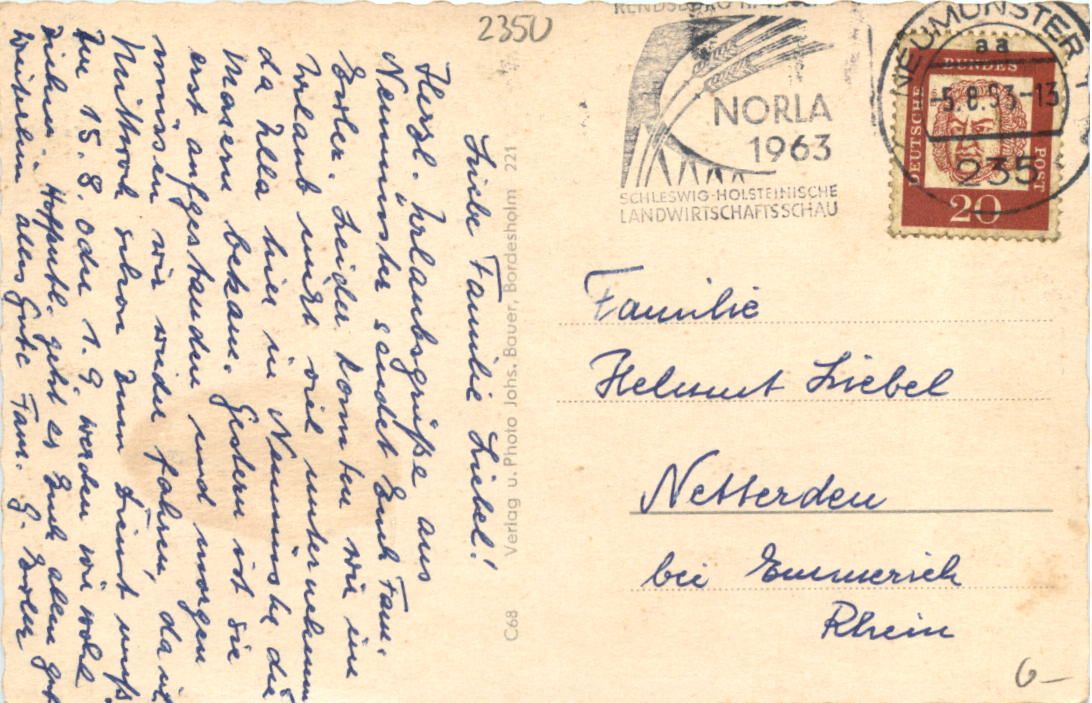 2350
RENDSBURG
NORLA
1963
SCHLESWIG-HOLSTEINISCHE
LANDWIRTSCHAFTSSCHAU
NEUMÜNSTER
aa
-5.8.63-13
235
DEUTSCHE
BUNDES
POST
20
Liebe Familie Liebel!
Herzl. Urlaubsgrüße aus
Neumünster sendet Euch Fam.
Exler. Leider konnten wir im
Urlaub nicht viel unternehmen
da Illa hier in Neumünster die
Masern bekam. Gestern ist sie
erst aufgestanden und morgen
müssen wir wieder fahren, da ich
Mittwoch schon zum Dienst muß.
Zum 15.8. oder 1.9. werden wir wohl
ziehen. Hoffentl. geht es Euch allen gut
weiterhin alles Gute Fam. G. Exler
C68 Verlag u. Photo Johs. Bauer, Bordesholm 221
Familie
Helmut Liebel
Netterden
bei Emmerich
Rhein
6-